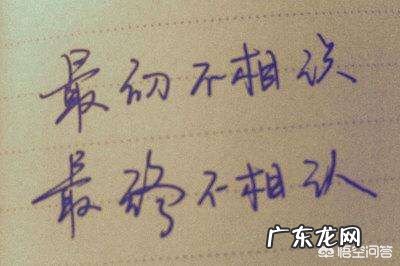 最初不相识
最终不相认
广东龙网
悟空问答